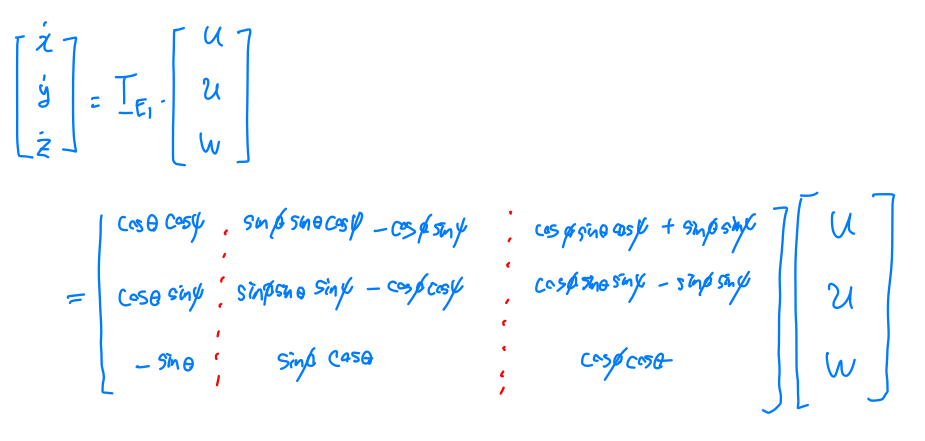 [ẋ ẏ ż] = T_E1 · [u u w]
= [cosθ cosψ  sinϕ sinθ cosψ − cosϕ sinψ  cosϕ sinθ cosψ + sinϕ sinψ
cosθ sinψ  sinϕ sinθ sinψ − cosϕ cosψ  cosϕ sinθ sinψ − sinϕ sinψ
− sinθ  sinϕ cosθ  cosϕ cosθ] [u u w]